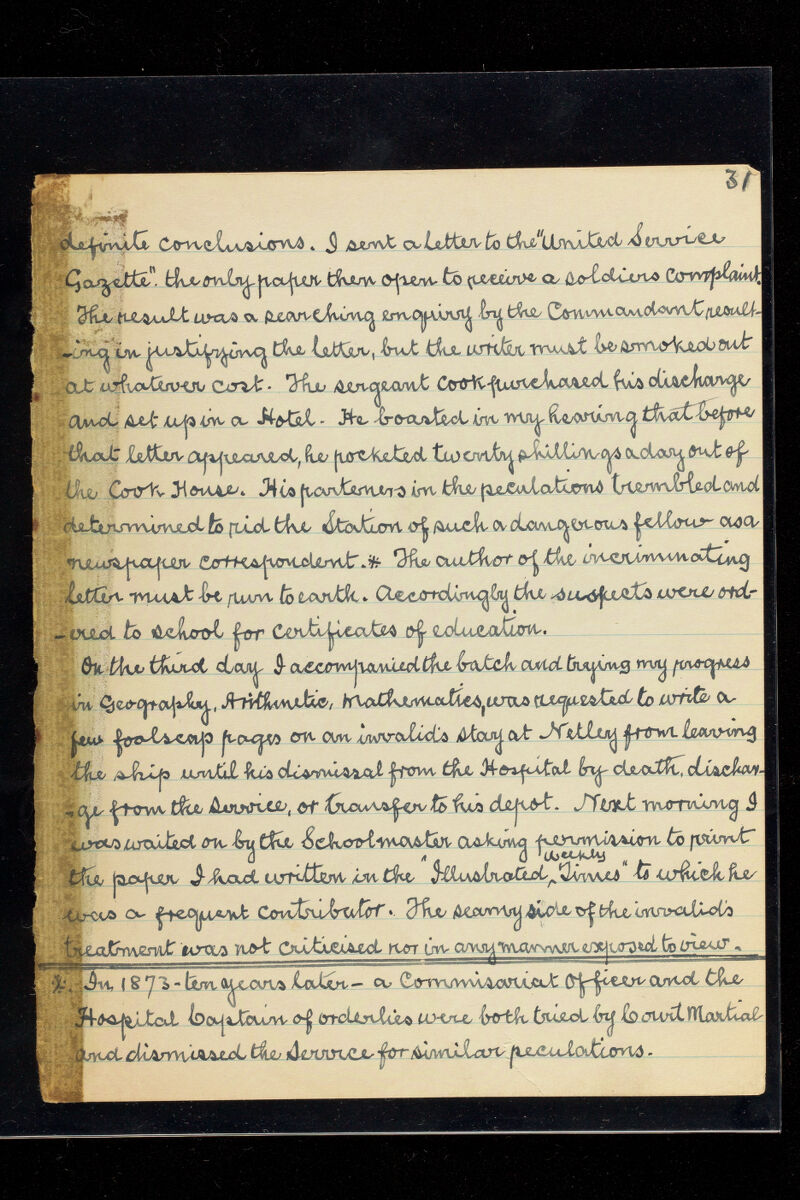 31
definite conclusions. I sent a letter to the "United Service
Gazette". the only paper then open to receive a soldiers complaint.
The result was a searching enquiry by the Commandant, result-
-ing in justifying the letter, but the writer must be smoked out
at whatever cost. The sergeant Cook purchased his discharge
and set up in a Hotel. He boasted in my hearing that before
that letter appeared, he pocketed twenty shillings a day out of
the Cook House. His parteners in the peculations trembled and
determined to rid the Station of such a dangerous fellow as a
newspaper correspondent.* The author of the incriminating
letter must be run to earth. Accordingly the suspects were ord-
-ered to school for certificates of education.
On the third day I accompanied the batch and trying my progress
in Geography, Arithmetic, Mathematics, was requested to write a
few foolscap pages on an invalid's stay at Netley from leaving
the ship until his dismissal from the Hospital by death, dischar-
-ge from the Service, or transfer to his depot. Next morning I
was waited on by the Schoolmaster asking permission to print
the paper I had written in the "Illustrated, Weekly Times" to which he
was a frequent contributor. The seamy side of the invalid's
treatment was not criticised nor in any manner exposed to view.
*. In 1873 - ten years later - a Commisariat Officer and the
Hospital Captain of orderlies were both tried by Court Martial
and dismissed the Service for similar peculations.